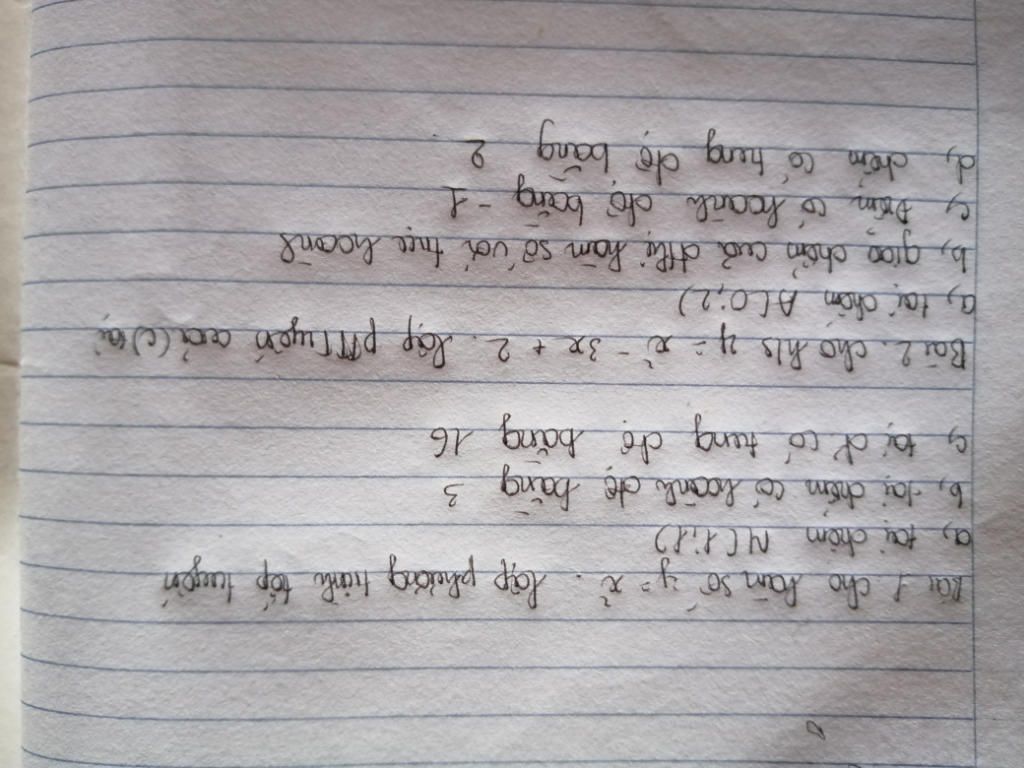 Bài 1 cho hàm số y = x². lập phương trình tiếp tuyến
a, tại điểm M(1;1)
b, tại điểm có hoành độ bằng 3
c, tại đ' có tung độ bằng 16
Bài 2. cho h/s y = x² - 3x + 2. lập PTTTuyến của (c) tại
a, tại điểm A(0;2)
b, giao điểm của đthị hàm số với trục hoành
c, Điểm có hoành độ bằng -1
d, điểm có tung độ bằng 2